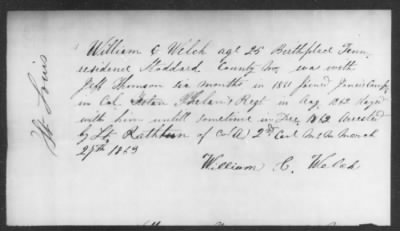 St Louis
William C Welch age 25 Birthplace Tenn
residence Stoddard County Mo, was with
Jeff Thomson six months in 1861 joined
in Col. Regt in Aug 1862 stayed
with him untill sometime in Dec, 1862 Arrested
by Lt. Rathbun of Co A 2nd Cav M S M March
25th 1863
William C. Welch